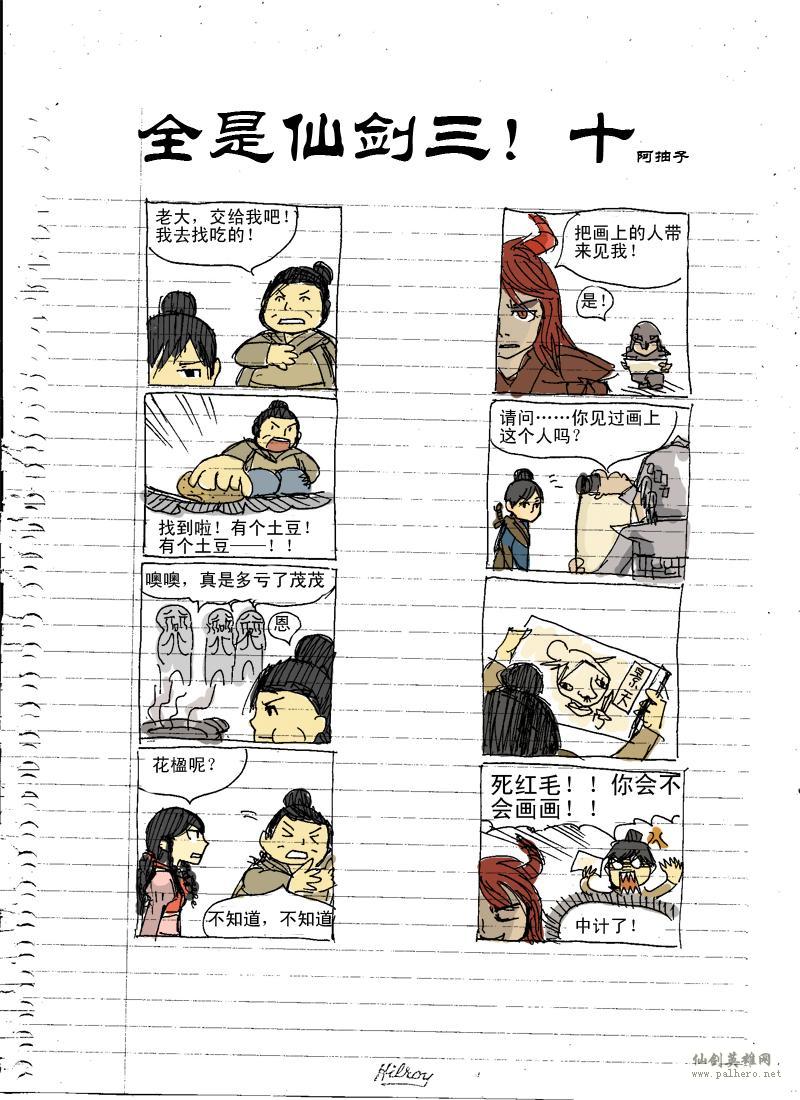 全是仙剑三！十
阿抽子
老大，交给我吧！
我去找吃的！
找到啦！有个土豆！
有个土豆——！！
噢噢，真是多亏了茂茂
恩
花楹呢？
不知道，不知道
把画上的人带
来见我！
是！
请问……你见过画上
这个人吗？
景天
死红毛！！你会不
会画画！！
中计了！
Hilroy
仙剑英雄网
www.palhero.net